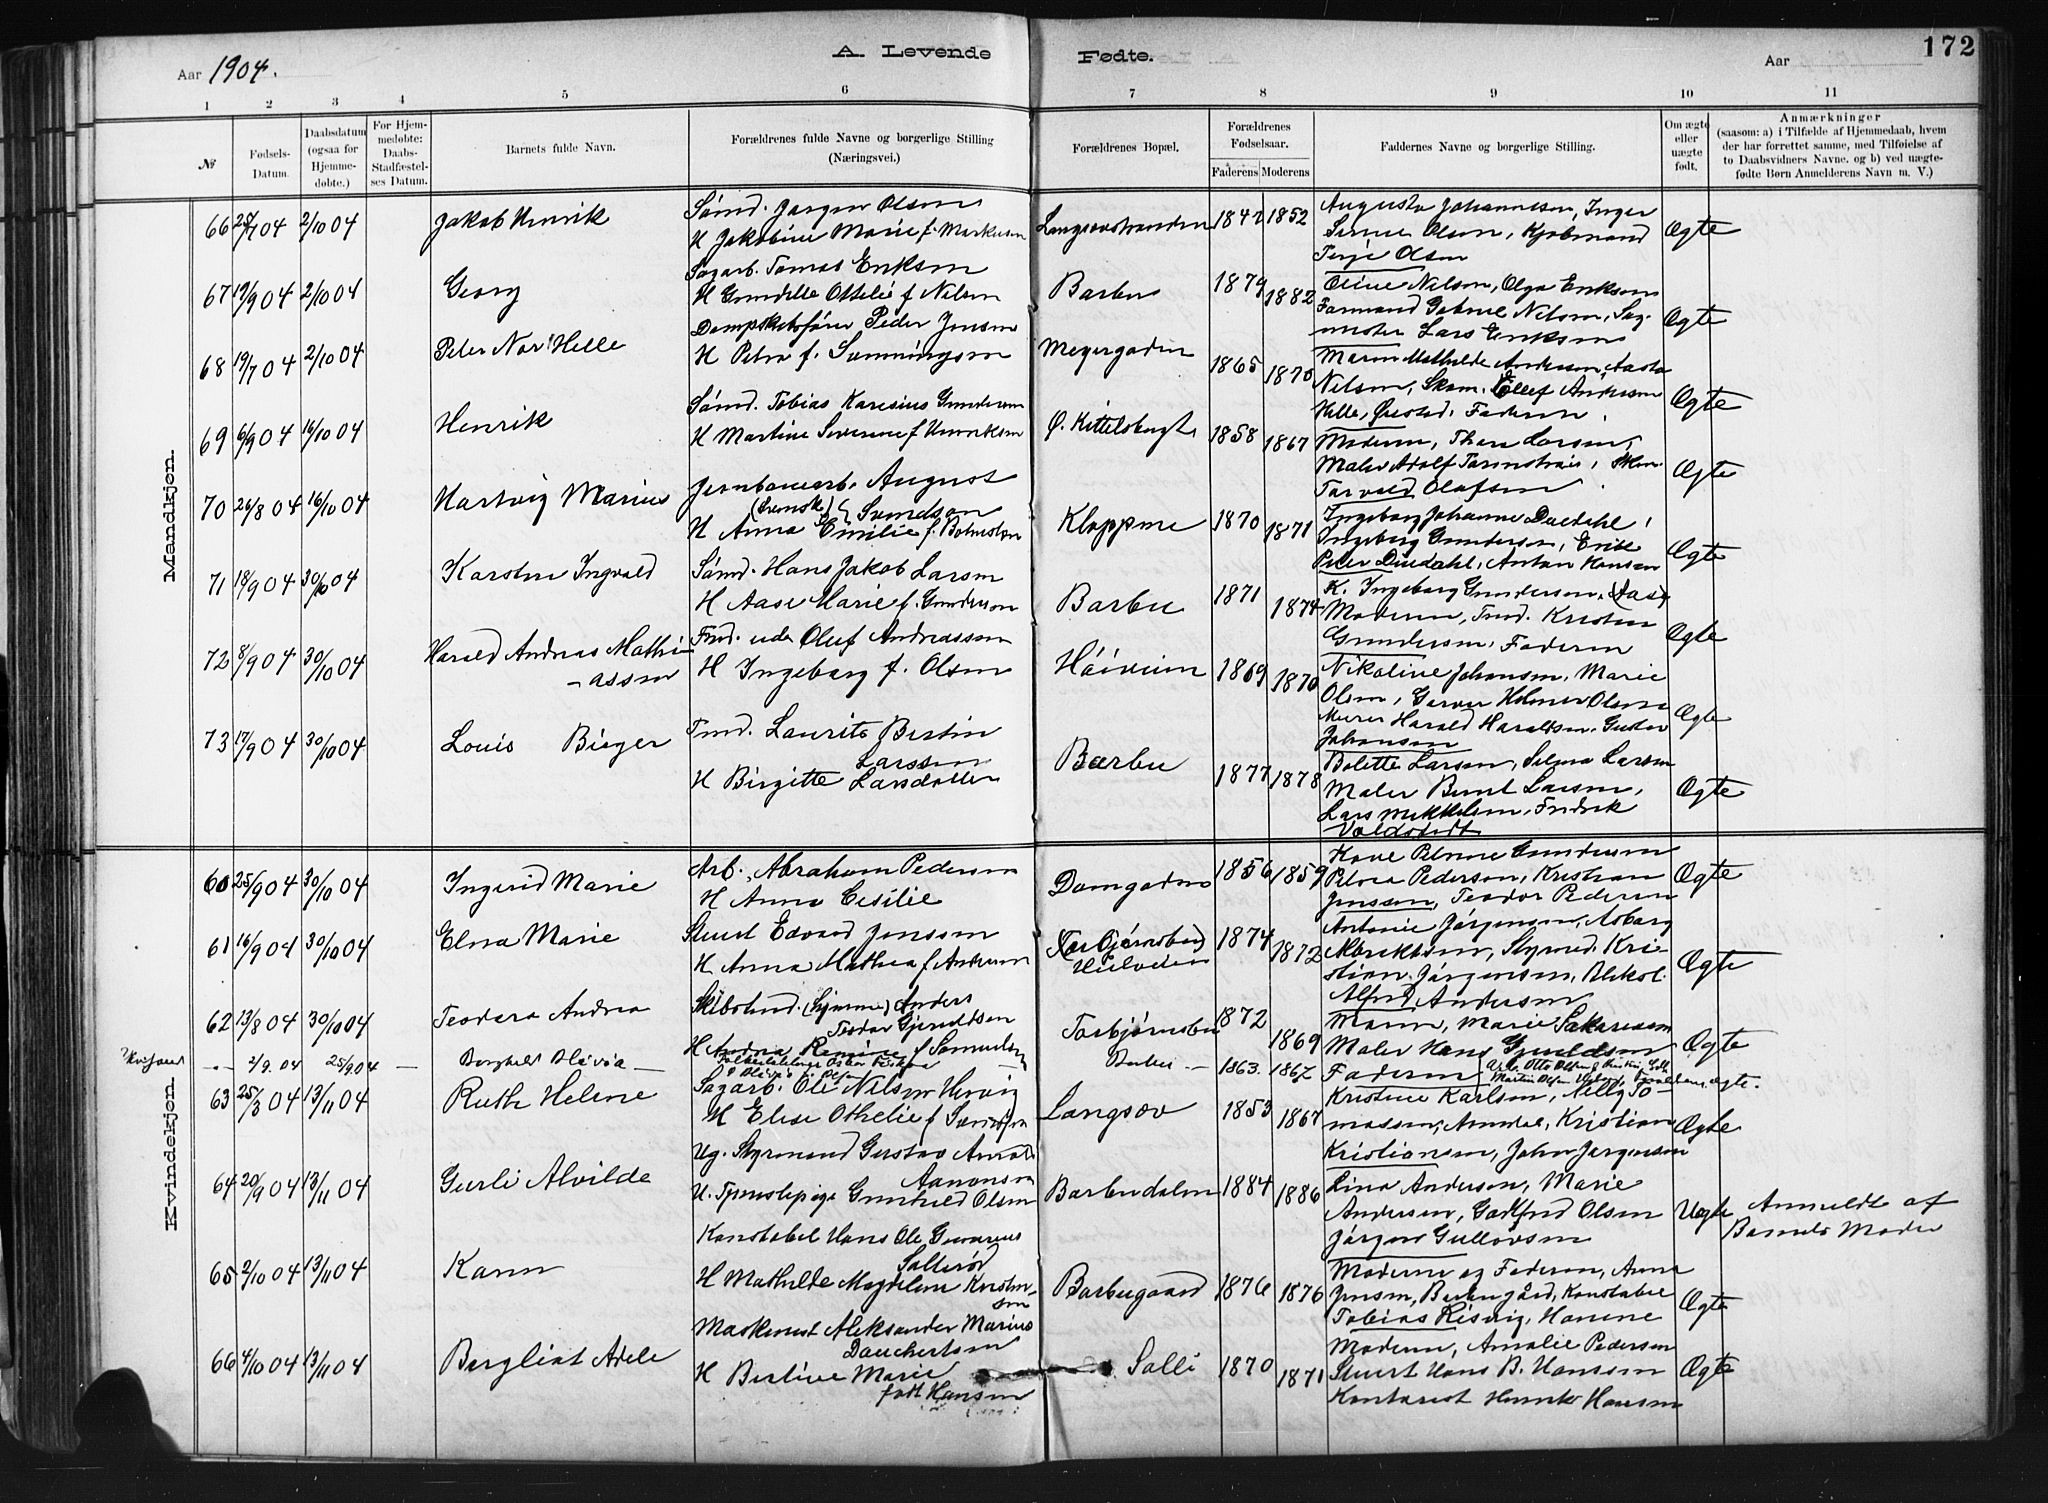 A. Levende Fødte. 172
Aar 1904. Aar
1 2 3 4 5 6 7 8 9 10 11
№
Fødsels-Datum.
Daabsdatum (ogsaa for Hjemme-døbte.)
For Hjem-medøbte: Daabs-Stadfæstel-ses Datum.
Barnets fulde Navn.
Forældrenes fulde Navne og borgerlige Stilling (Næringsvei.)
Forældrenes Bopæl.
Forældrenes Fødselsaar.
Faderens Moderens
Faddernes Navne og borgerlige Stilling.
Om ægte eller uægte født.
Anmærkninger
(saasom: a) i Tilfælde af Hjemmedaab, hvem
der har forrettet samme, med Tilføielse af
to Daabsvidners Navne. og b) ved uægte-
fødte Børn Anmelderens Navn m. V.)
Mandkjøn.
66 2/10 04 Jakob Henrik
Sømd. Jørgen Olsen
H Jakobine Marie f. Markusen
1852
Augusta Johannesen, Inger
Olsen, Kjøbmand
Terje Olsen
Ægte
67 19/9 04 2/10 04 Georg
Sagarb. Tomas Eriksen
H Gunnelle Ottelie f Nilsen
Barbu 1879 1882
Oline Nilsen, Olga Eriksen
Formand Gabriel Nilsen, Sag-
mester Lars Eriksen
Ægte
68 19/7 04 2/10 04 Peter Nor Helle
Dampskibsfører Peder Jensen
H Petra f. Sønningsen
Meyergaden 1865 1875
Maren Mathilde Andersen, Aasta
Nilsen, Ellef Andersen
Helle, Øiestad, Faderen
Ægte
69 6/9 04 16/10 04 Henrik
Sømd. Tobias Karesius Gundersen
H Martine Severine f Henriksen
Ø. Kittelsbugt 1858 1867
Moderen, Thora Larsen,
Maler Adolf
Torvald Olafsen
Ægte
70 26/8 04 16/10 04 Hartvig Marius
Jernbanearb. August
(Svensk) Svendsen
H Anna Emilie f.
Kloppene 1870 1871
Ingeborg Johanne Duedahl,
Ingeborg Gundersen, Erik
Peter Duedahl, Anton Hansen
Ægte
71 18/9 04 30/10 04 Karsten Ingvald
Sømd. Hans Jakob Larsen
H Aase Marie f. Gundersen
Barbu 1871 1874
K. Ingeborg Gundersen, (Aas)
Moderen, Tmd. Kristen
Gundersen, Faderen
Ægte
72 8/9 04 30/10 04 Harald Andreas Mathi-
assen
Oluf Andreassen
H Ingeborg f. Olsen
1869 1870
Nikoline Johansen, Marie
Olsen, Garver Hilmer Olsen
Murer Harald Haraldsen, Gustav
Johansen
Ægte
73 17/9 04 30/10 04 Louis Birger
Tmd. Laurits Bertin
Larssen
H Birgitte Larsdatter
Barbu 1877 1878
Bolette Larsen, Selma Larsen
Maler Bernt Larsen,
Lars Mikkelsen, Fredrik
Valdstedt
Ægte
Kvindekjøn.
60 25/9 04 30/10 04 Ingerid Marie
Arb. Abraham Pedersen
H Anna Cesilie
Damgaden 1856 1859
Kone Gundersen
Petra Pedersen, Kristian
Jenssen, Teodor Pedersen
Ægte
61 16/9 04 30/10 04 Elna Marie
Stuert Edvard Jenssen
H Anna Mathea f Andersen
(Torbjørnsbu) 1874 1872
Antonie Jørgensen, Asborg
Styrmd. Kri-
stian Jørgensen,
Alfred Andersen
Ægte
62 13/8 04 30/10 04 Teodora Andrea
Skibstmd. (hjemme) Anders
Teodor Gjeruldsen
H Andrea f Samuelsen
Torbjørnsbu 1872 1869
Maren, Marie Sakariasen
Maler Hans Gjeruldsen
Faderen
Ægte
2/9. 04 25/9 04 Borghild Olivia
1863. 1867
ægte.
63 25/3 04 13/11 04 Ruth Helene
Sagarb. Ole Nilsen
H Elise Othelie f
Langsæv 1853 1867
Kristine Karlsen, Nelly To-
massen, Arendal, Kristian
Kristiansen, John Jørgensen
Ægte
64 20/9 04 13/11 04 Gurli Alvilde
Ug. Styrmand Gustav Arnold
Aanonsen
U. Tjenestepige Gunhild Olsen
Barbudalen 1884 1886
Lina Andersen, Marie
Andersen, Godtfred Olsen
Jørgen Gullovsen
Uegte Anmeldt af
Barnets Moder
65 2/10 04 13/11 04 Karen
Konstabel Hans Ole Gunerius
Solterød
H Mathilde Magdelene Kristen-
sen
Barbugaard 1876 1876
Moderen og Faderen, Anna
Jensen, Barbugård, Konstabel
Tobias Risvig, Hanene
Ægte
66 4/10 04 13/11 04 Bergliot Adele
Maskinist Aleksander Marius
Danckertsen
H Bertine Marie
født Hansen
Solli 1870 1871
Moderen, Amalie Pedersen
Stuert Hans B. Hansen
Kontorist Henrik Hansen
Ægte